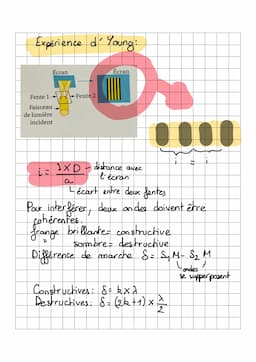 Expérience d'Young:
Écran
Écran
Fente 1
Fente 2
Faisceau
de lumière
incident
i = i
i = λ×D / a
distance avec
l'écran
écart entre deux fentes
Pour interférer, deux ondes doivent être
cohérentes.
frange brillante = constructive
" sombre = destructive
Différence de marche δ = S₁M - S₂M
ondes
se superposent
Constructives: δ = k×λ
Destructives: δ = (2k+1) × λ/2